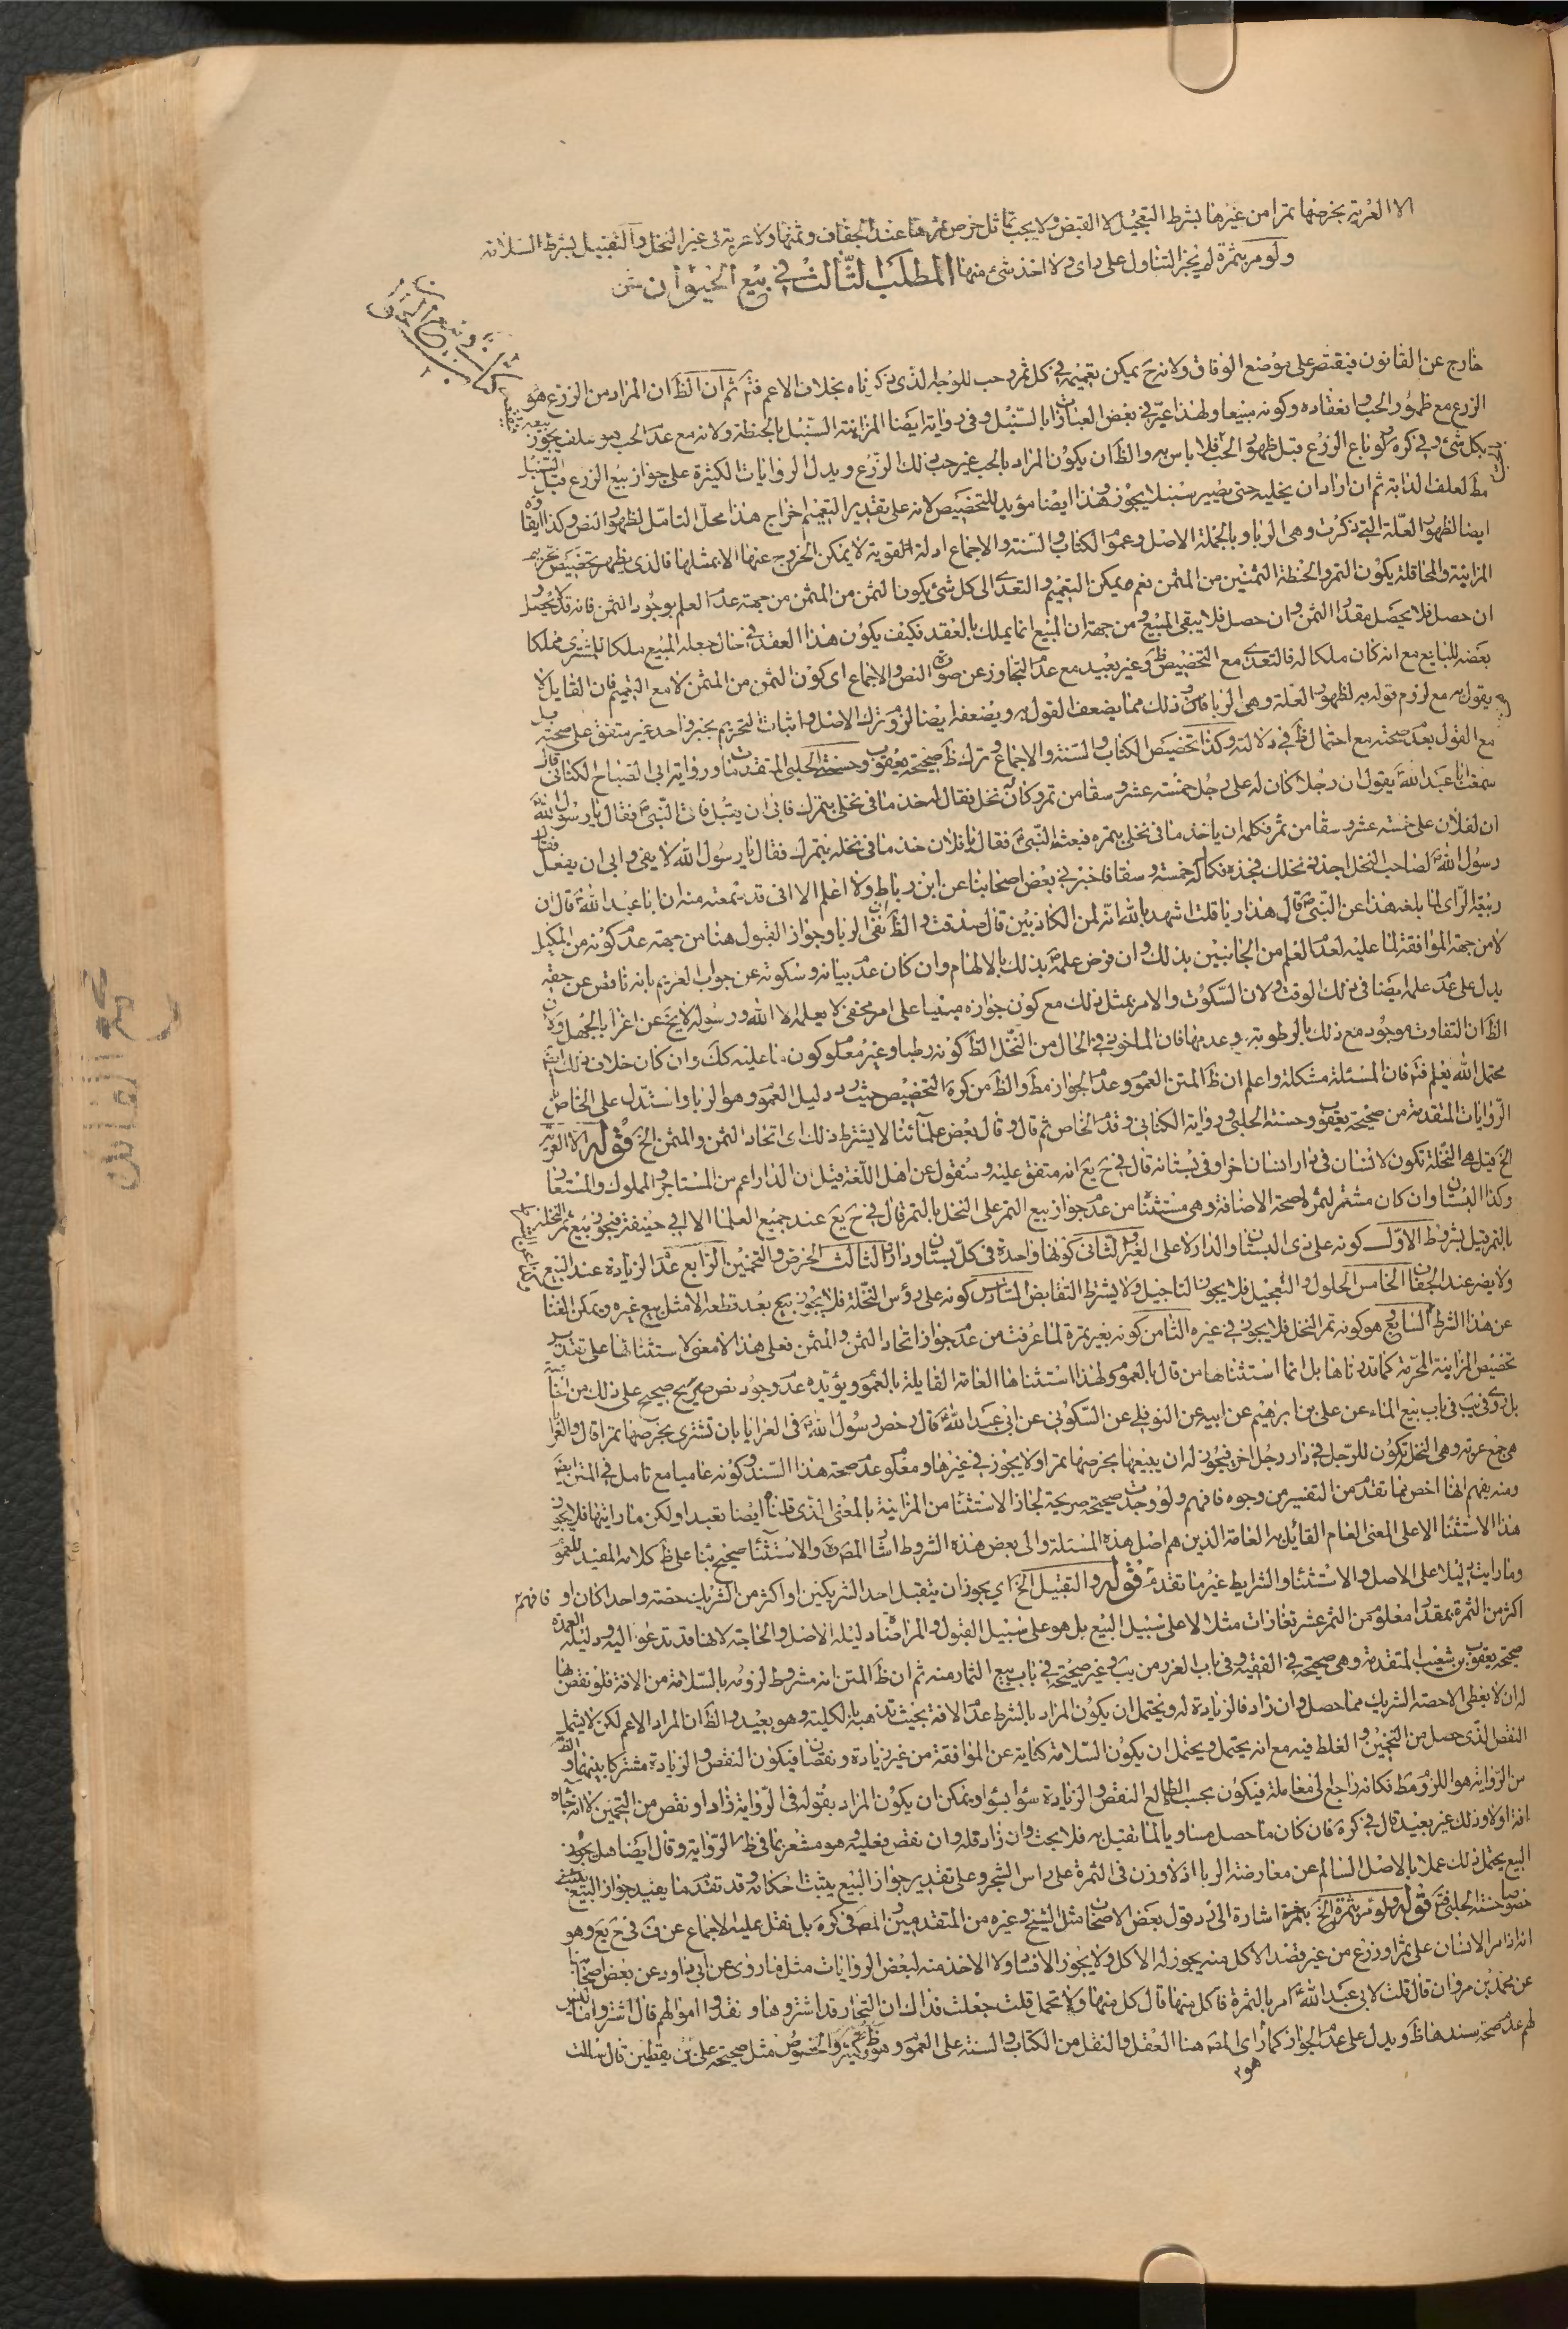 الا العرية بخرصها تمرا من غيرها بشرط التعجيل لا القبض ولا يجب تماثل خرص ثمرتها عند الجفاف وثمنها ولا عرية في غير النخل والتقبيل بشرط السلامة
ولو مر بثمرة لم يجز التناول على راى ولا اخذ شئ منها المطلب الثالث في بيع الحيوان
خارج عن القانون فيقتصر على موضع الوفاق ولانه ح يمكن تعميمه في كل ثمر وحب للوجه الذى ذكرناه بخلاف الاعم فتم ثم ان الظ ان المراد من الزرع هو
الزرع مع ظهور الحب وانعقاده وكونه مبيعا ولهذا عبر في بعض العبارات بالسنبل وفى رواية ايضا المزابنة السنبل بالحنطة ولانه مع عدم الحب هو علف يجوز
بكل شئ وفى كره ولو باع الزرع قبل ظهور الحب فلا باس به والظ ان يكون المراد بالحب غير حب ذلك الزرع ويدل الروايات الكثيرة على جواز بيع الزرع قبل السنبل
مط لعلف الدابة ثم ان اراد ان يخليه حتى يصير سنبلا يجوز وهذا ايضا مؤيد للتخصيص لانه على تقدير التعميم اخراج هذا محل التامل لظهور النص وكذا
ايضا لظهور العلة التى ذكرت وهى الربا وبالجملة الاصل وعموم الكتاب والسنة والاجماع ادلة القوية لا يمكن الخروج عنها الا بمثلها فالذى يظهر تخصيص تحريم
المزابنة والمحاقلة بكون التمر والحنطة الثمنين من المثمن نعم يمكن التعميم والتعدى الى كل شئ يكون الثمن من المثمن من جهة عدم العلم بوجود الثمن فانه قد لا يحصل
ان حصل فلا يحصل مقدار الثمن وان حصل فلا يبقى المبيع ومن جهة ان المبيع انما يملك بالعقد فكيف يكون هذا العقد في حال جعله المبيع ملكا للمشترى مملكا
بعضه للبايع مع انه كان ملكا له فالتعدى مع التخصيص ظ وغير بعيد مع عدم التجاوز عن صورة النص والاجماع اى كون الثمن من المثمن لا مع التعميم فان القايل لا
يقول به مع لزوم قوله به لظهور العلة وهى الربا وذلك مما يضعف القول به ويضعفه ايضا لزوم ترك الاصل واثبات التحريم بخبر واحد غير متفق على صحته
مع القول بعدم صحته مع احتمال ظ في دلالته وكذا تخصيص الكتاب والسنة والاجماع وترك ظ صحيحة يعقوب وحسنة الحلبى المتقدمتان ورواية ابى الصباح الكنانى قال
سمعت ابا عبد الله يقول ان رجلا كان له على رجل خمسة عشر وسقا من تمر وكان له نخل فقال له خذ ما في نخلى بتمرك فابى ان يقبل فاتى النبى فقال يا رسول الله
ان لفلان على خمسة عشر وسقا من تمر فكلمه ان ياخذ ما في نخلى بتمره فبعث النبى فقال يا فلان خذ ما في نخله بتمرك فقال يا رسول الله لا يفى وابى ان يفعل فقال
رسول الله لصاحب النخل اجذذ نخلك فجذه فكال له خمسة عشر وسقا فاخبرنى بعض اصحابنا عن ابن رباط ولا اعلم الا انى قد سمعته منه ان ابا عبد الله قال ان
ربيعة الراى لما بلغه هذا عن النبى قال هذا ربا قلت اشهد بالله انه لمن الكاذبين قال صدقت والظ ان نفى الربا وجواز القبول هنا من جهة عدم كونه من المكيل
لا من جهة الموافقة لما عليه لعدم العلم من الجانبين بذلك وان فرض علمه بذلك بالالهام وان كان عدم بيانه وسكوته عن جواب الغريم بانه ناقص عن حقه
يدل على عدم علمه ايضا في ذلك الوقت ولان السكوت والامر بمثل ذلك مع كون جوازه مبنيا على امر مخفى لا يعلمه الا الله ورسوله لا يخ عن اغراء بالجهل ولان
الظ ان التفاوت موجود مع ذلك بالرطوبة وعدمها فان الماخوذ في الحال من النخل الظ كونه رطبا وغير معلوم كون ما عليه كك وان كان خلاف ذلك ايضا
محتمل الله يعلم فتم فان المسئلة مشكلة واعلم ان ظ المتن العموم وعدم الجواز مط والظ من كره التخصيص حيث رد دليل العموم وهو الربا واستدل على الخاص
الروايات المتقدمة من صحيحة يعقوب وحسنة الحلبى ورواية الكنانى وقدم الخاص ثم قال وقال بعض علمائنا لا يشترط ذلك اى اتحاد الثمن والمثمن الخ قوله الا العرية
الخ قيل هى النخلة تكون لانسان في دار انسان اخر او في بستانه قال في ح يع انه متفق عليه ومنقول عن اهل اللغة قيل ان الدار اعم من المستاجر والمملوك والمستعار
وكذا البستان وان كان مشعر لصحة الاضافة وهى مستثنا من عدم جواز بيع الثمر على النخل بالتمر قال في ح يع عند جميع العلماء الا ابى حنيفة فيجوز بيع ثمر النخلة
بالتمر قيل بشروط الاول كونه على ذى البستان والدار لا على الغير الثانى كونها واحدة في كل بستان ودار الثالث الخرص والتخمين الرابع عدم الزيادة عند البيع
ولا يضر عند الجفاف الخامس الحلول والتعجيل فلا يجوز التاجيل ولا يشترط التقابض السادس كونه على رؤس النخلة فلا يجوز بيع بعد قطعه الا مثل بيع غيره ويمكن الغنا
عن هذا الشرط السابع هو كونه ثمر النخل فلا يجوز في غيره الثامن كونه بغير تمرة لما عرفت من عدم جواز اتحاد الثمن والمثمن فعلى هذا لا معنى لاستثنائها على تقدير
تخصيص المزابنة المحرمة كما قدمناها بل انما استثناها من قال بالعموم ولهذا استثناها العامة القايلة بالعموم ويؤيده عدم وجود نص صريح صحيح على ذلك من
بل روى في يب في باب بيع الماء عن على بن ابرهيم عن ابيه عن النوفلى عن السكونى عن ابى عبد الله قال رخص رسول الله في العرايا بان تشترى بخرصها تمرا قال والعرايا
هى جمع عرية وهى النخل تكون للرجل في دار رجل اخر فيجوز له ان يبيعها بخرصها تمرا ولا يجوز في غيرها ومعلوم عدم صحة هذا السند وكونه عاميا مع تامل في المتن ايضا
ومنه يفهم انها اخص مما تقدم من التفسير من وجوه فافهم ولو وجدت صحيحة صريحة لجاز الاستثناء من المزابنة بالمعنى الذى قلناه ايضا تعبدا ولكن ما رايتها فلا يجوز
هذا الاستثناء الا على المعنى العام القائل به العامة الذين هم اصل هذه المسئلة والى بعض هذه الشروط اشار المصره والاستثناء صحيح بناء على ظ كلامه المفيد للعموم
وما رايت دليلا على الاصل والاستثناء والشرايط غير ما تقدم قوله والتقبيل الخ اي يجوز ان يتقبل احد الشريكين او اكثر من الشريك حصته واحدا كان او فافهم
اكثر من الثمرة بمقدار معلوم من الثمر عشر تغارات مثلا لا على سبيل البيع بل هو على سبيل القبول والمراضاة دليله الاصل والحاجة لانها قد تدعو اليه ودليله العمدة
صحيحة يعقوب بن شعيب المتقدمة وهى صحيحة في الفقيه وفى باب الغرر من يب وغير صحيحة في باب بيع الثمار منه ثم ان ظ المتن انه مشروط لزومه بالسلامة من الافة فلو نقص
له ان لا يعطى الا حصة الشريك مما حصل وان زاد فالزيادة له ويحتمل ان يكون المراد بالشرط عدم الافة بحيث تذهب بالكلية وهو بعيد والظ ان المراد الاعم لكن لا يشمل
النقص الذى حصل من التخمين والغلط فيه مع انه يحتمل ويحتمل ان يكون السلامة كناية عن الموافقة من غير زيادة ونقصان فيكون النقص والزيادة مشتركا بينهما والظ
من الرواية هو اللزوم مط فكانه راجع الى معاملة فيكون بحسب الطالع النقص والزيادة سواء بسواء ويمكن ان يكون المراد بقوله في الرواية زاد او نقص من التخمين لا انه جاءه
افة اولا وذلك غير بعيد قال في كره فان كان ما حصل مساويا لما تقبل به فلا بحث وان زاد فله وان نقص فعليه هو مشعر بما في ظ الرواية وقال ايضا هل يجوز
البيع يحتمل ذلك عملا بالاصل السالم عن معارضة الربا اذ لا وزن في الثمرة على راس الشجر وعلى تقدير جواز البيع يثبت احكامه وقد تقدم ما يفيد جواز البيع
خصوصا حسنة الحلبى فتم قوله ولو مر بثمرة الخ اشارة الى رد قول بعض الاصحاب مثل الشيخ وغيره من المتقدمين والمص في كره بل نقل عليه الاجماع عن ف في ح يع وهو
انه اذا مر الانسان على ثمر او زرع من غير قصد الاكل منه يجوز له الاكل ولا يجوز الافساد ولا الاخذ منه لبعض الروايات مثل ما روى عن ابى داود عن بعض اصحابنا
عن محمد بن مروان قال قلت لابى عبد الله امر بالثمرة فاكل منها قال كل منها ولا تحمل قلت جعلت فداك ان التجار قد اشتروها ونقدوا اموالهم قال اشتروا ما ليس
لهم عدم صحة سندها ظ ويدل على عدم الجواز كما راى المصه هنا العقل والنقل من الكتاب والسنة على العموم وهو ظ وكثير والخصوص مثل صحيحة على بن يقطين قال سالت